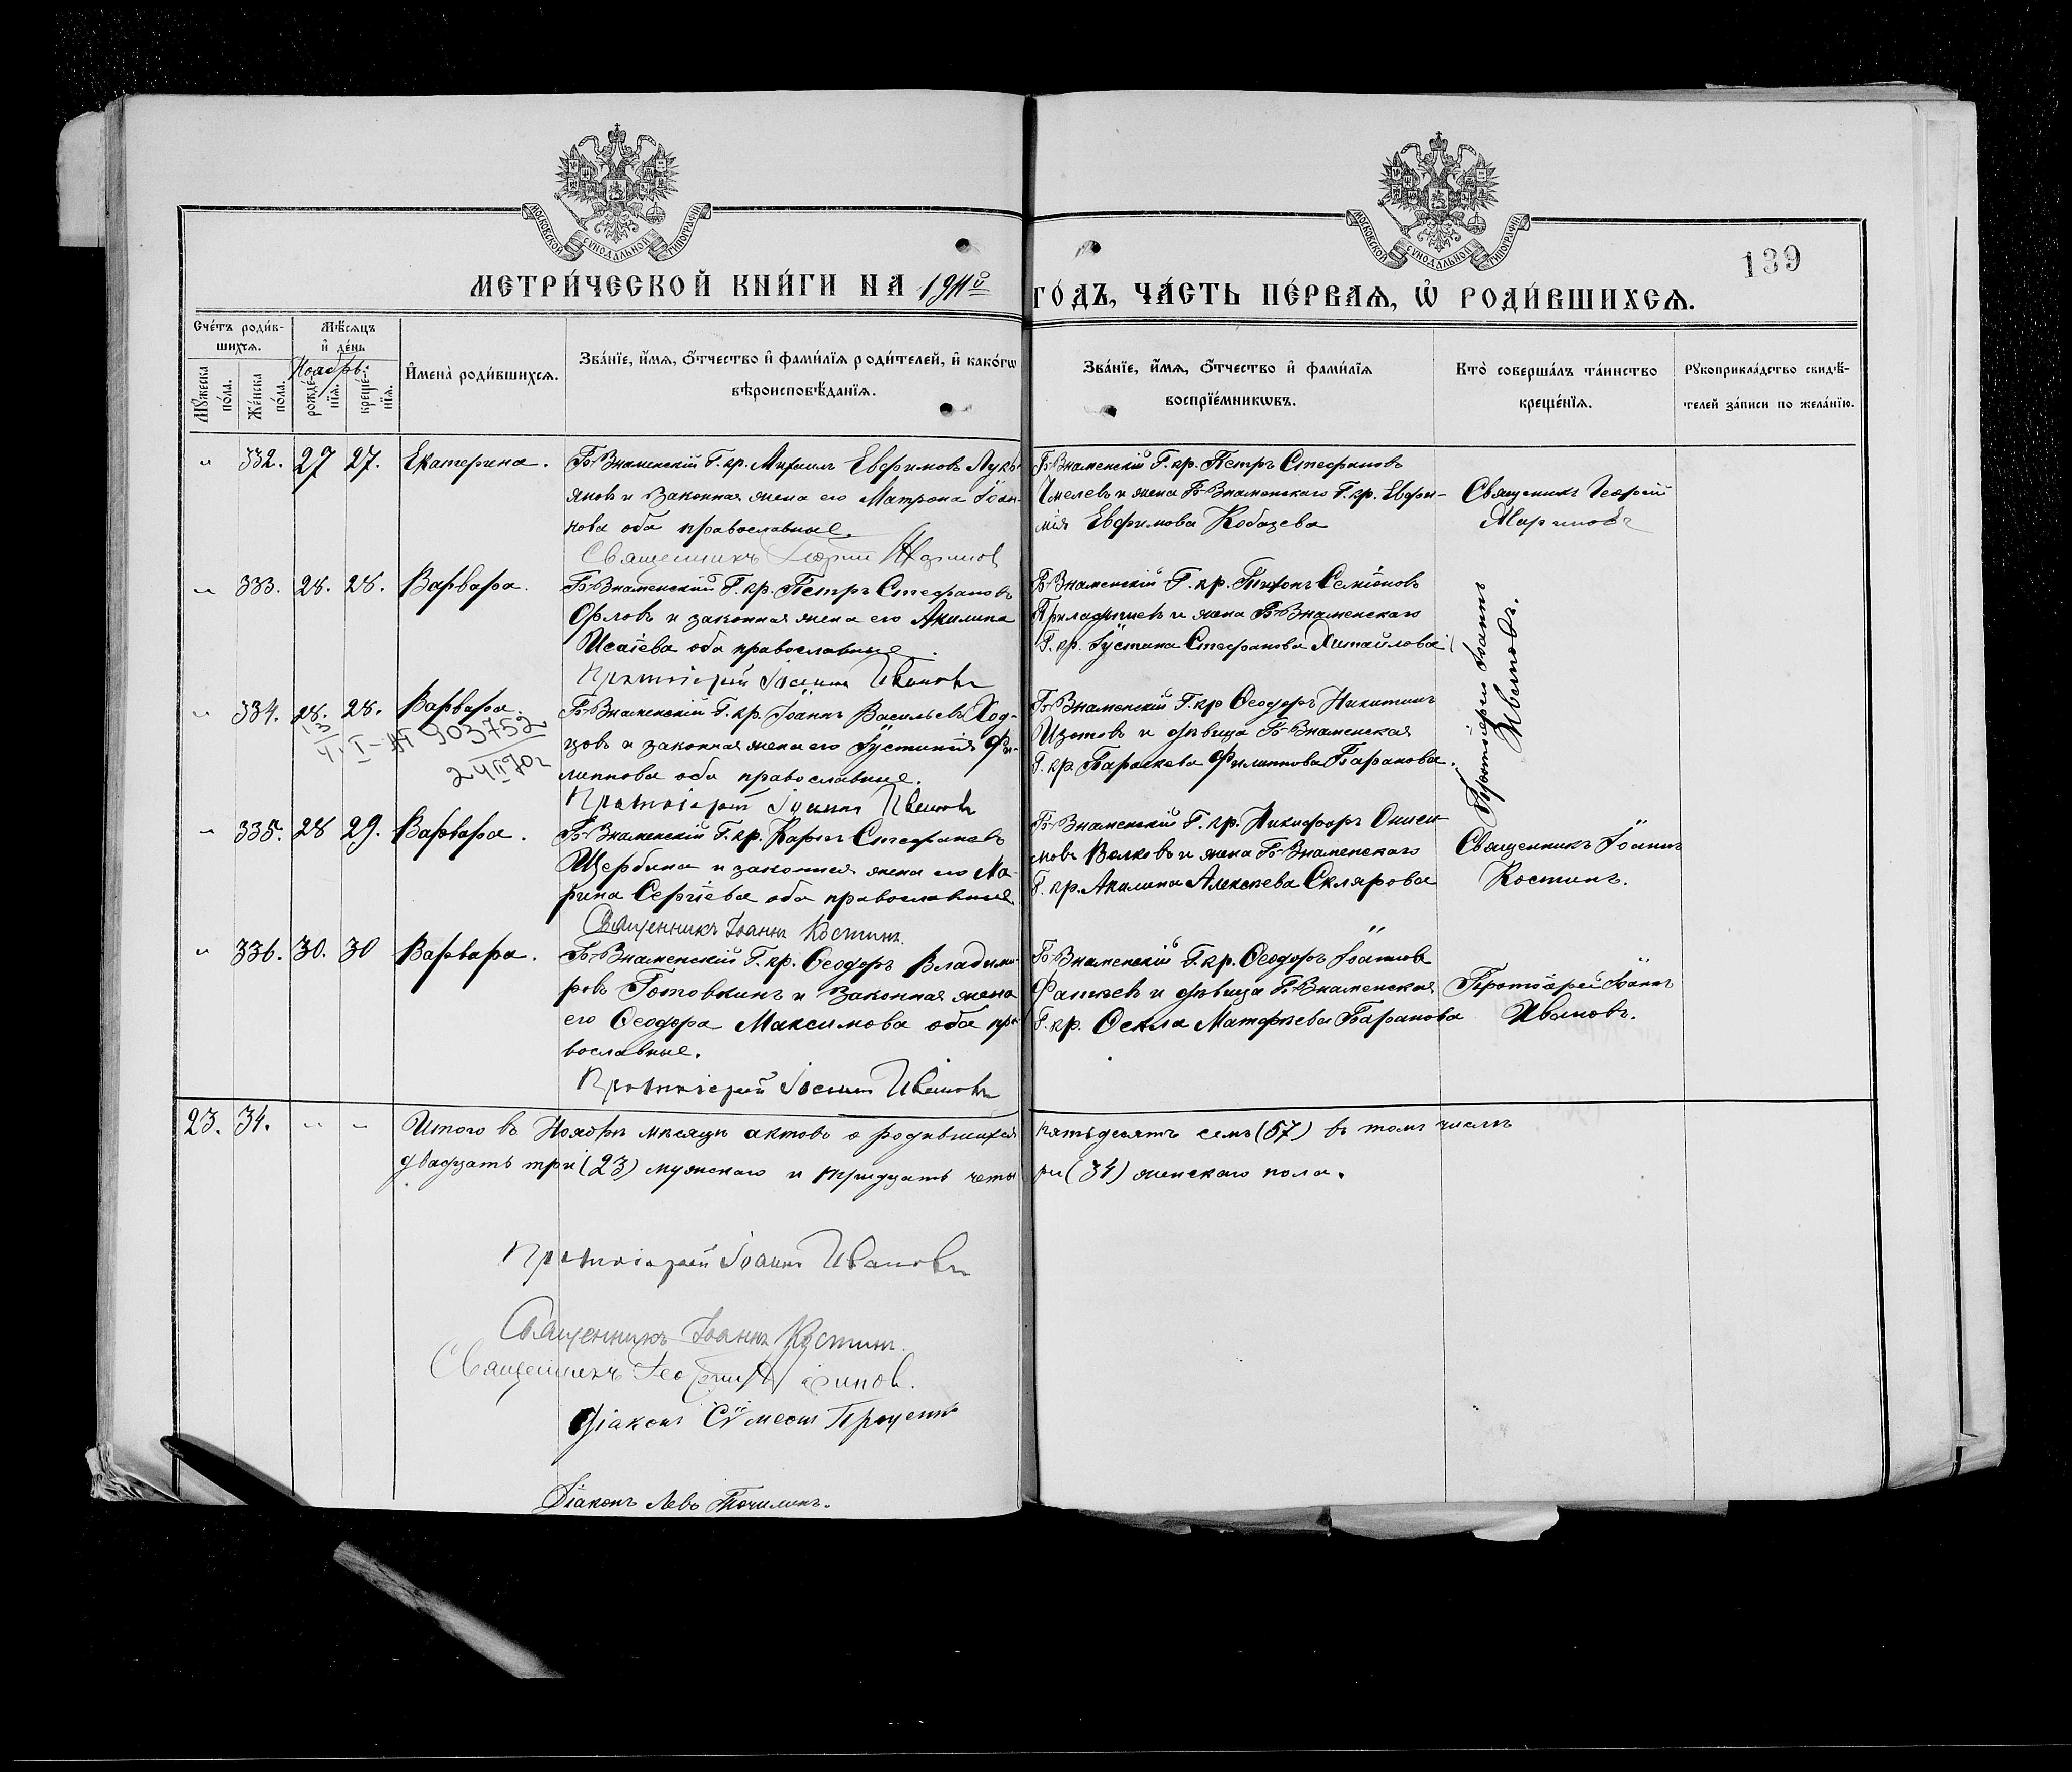 МОСКОВСКОЙ СѴНОДАЛЬНОЙ ТИПОГРАФІИ
МОСКОВСКОЙ СѴНОДАЛЬНОЙ ТИПОГРАФІИ
139
МЕТРИ́ЧЕСКОЙ КНИ́ГИ НА 1911й
ГО́ДЪ, ЧА́СТЬ ПЕ́РВАѦ, Ѽ РОДИ́ВШИХСѦ.
Сче́тъ роди́в-
шихсѧ.
Мꙋ́жеска по́ла.
Же́нска по́ла.
Мѣ́сѧцъ
и҆ де́нь
Ноябрь.
рожде́-нїѧ.
креще́-нїѧ.
И҆мена̀ роди́вшихсѧ.
Зва́нїе, и҆́мѧ, ѻ҆́тчество и҆ фами́лїѧ роди́телей, и҆ како́гѡ
вѣроисповѣ́данїѧ.
Зва́нїе, и҆́мѧ, ѻ҆́тчество и҆ фами́лїѧ
воспрїе́мникѡвъ.
Кто̀ соверша́лъ та́инство
креще́нїѧ.
Рꙋкоприкла́дство свидѣ́-
телей за́писи по жела́нїю.
" 332. 27 27. Екатерина. Б-Знаменскій Г. кр. Михаилъ Евфимовъ Лукь-
яновъ и законная жена его Матрона Іоан-
нова оба православные.
Священникъ Георгій Маринов
Б-Знаменскій Г. кр. Петръ Стефановъ
Чмелевъ и жена Б-Знаменскаго Г. кр. Евфи-
мія Евфимова Кобазева
Священникъ Георгій
Мариновъ
" 333. 28. 28. Варвара. Б-Знаменскій Г. кр. Петръ Стефановъ
Орловъ и законная жена его Акилина
Исаіева оба православные.
Протоіерей Іоаннъ Ивановъ
Б-Знаменскій Г. кр. Тихонъ Семіоновъ
и жена Б-Знаменскаго
Г. кр. Іустина Стефанова Михайлова
Протоіерей Іоаннъ
Ивановъ.
" 334. 28. 28. Варвара. Б-Знаменскій Г. кр. Іоаннъ Васильевъ Ход-
903752
24 II 70г
цовъ и законная жена его Іустинія Фи-
липпова оба православные.
Протоіерей Іоаннъ Ивановъ
Б-Знаменскій Г. кр Ѳеодоръ Никитинъ
Изотовъ и дѣвица Б-Знаменская
Г. кр. Параскева Филиппова Баранова.
" 335. 28 29. Варвара. Б-Знаменскій Г. кр. Карпъ Стефановъ
Щербина и законная жена его Ма-
рина Сергіева оба православные
Священникъ Іоаннъ Костинъ.
Б-Знаменскій Г. кр. Никифоръ Ониси-
мовъ Волковъ и жена Б-Знаменскаго
Г. кр. Акилина Алексѣева Склярова
Священникъ Іоаннъ
Костинъ.
" 336. 30. 30 Варвара. Б-Знаменскій Г. кр. Ѳеодоръ Владими-
ровъ Готовкинъ и законная жена
его Ѳеодора Максимова оба пра-
вославные.
Протоіерей Іоаннъ Ивановъ
Б-Знаменскій Г. кр. Ѳеодоръ Іоаннов
и дѣвица Б-Знаменская
Г. кр. Ѳекла Матѳеева Баранова
Протоіерей Іоаннъ
Ивановъ.
23. 34. " " Итого въ Ноябрѣ мѣсяцѣ актовъ о родившихся пятьдесятъ семь (57) въ томъ числѣ
двадцать три (23) мужскаго и тридцать четы ри (34) женскаго пола.
Протоіерей Іоаннъ Ивановъ
Священникъ Іоаннъ Костинъ.
Священникъ Георгій Маринов.
Діаконъ Сѵмеонъ Проценко
Діаконъ Левъ Точилинъ.